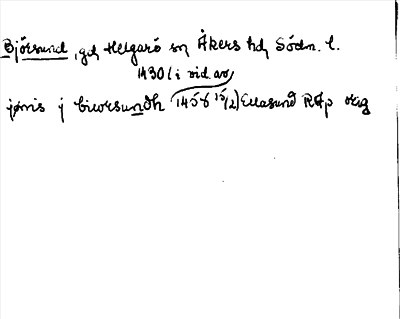 Björsund, gd, Helgarö sn Åkers hd, Södm. l.
1430 l i vid av
jønis j biorsundh 1456 15/2) Edasund RAp orig